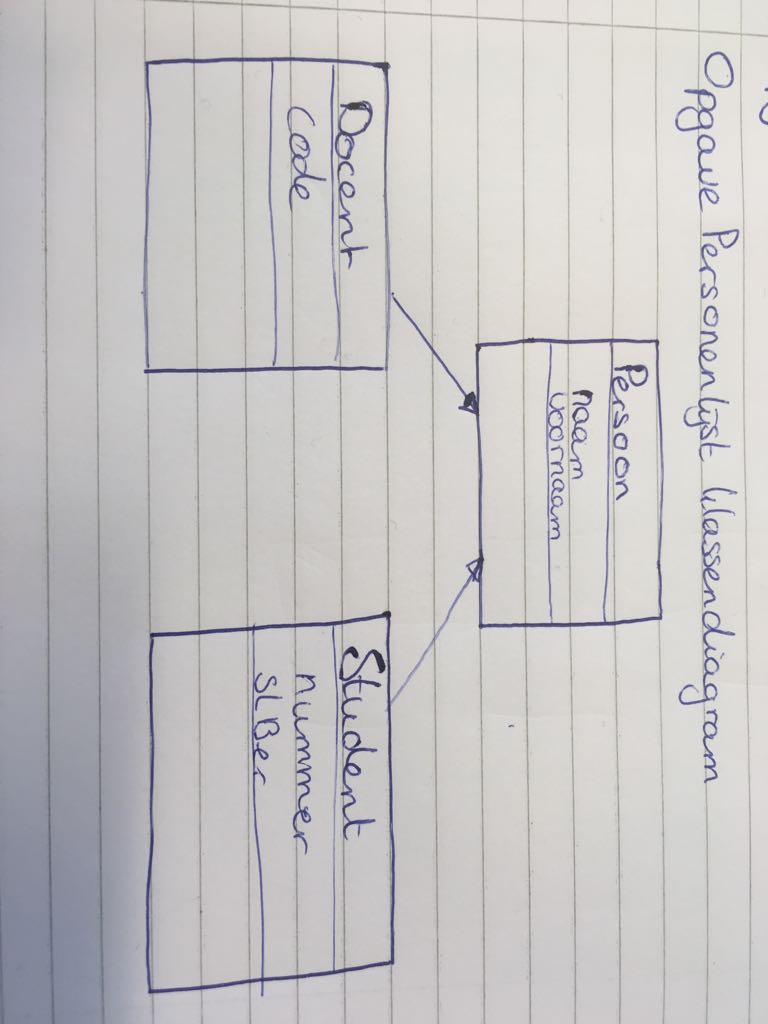 Opgave Personenlijst klassendiagram
Persoon
naam
voornaam
Docent
code
Student
nummer
SLBer